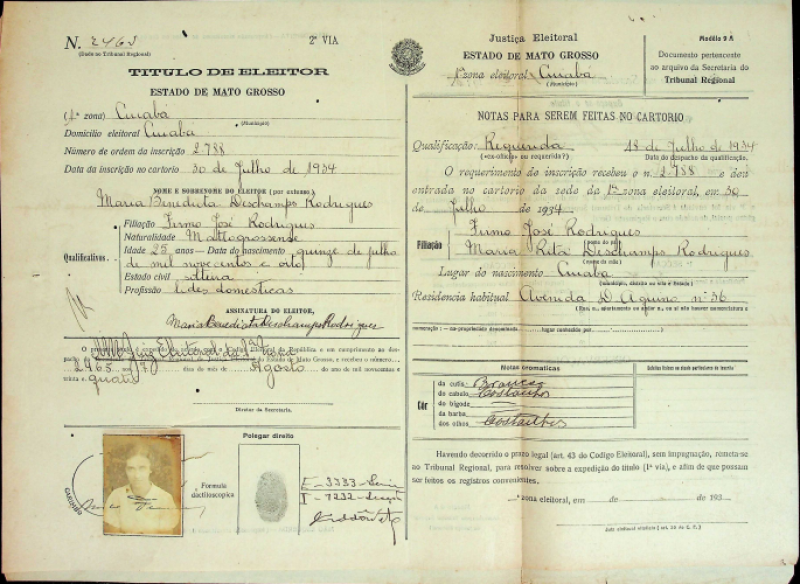 N. 2463
2ª VIA
(Dado ao Tribunal Regional)
TITULO DE ELEITOR
ESTADO DE MATO GROSSO
(1ª zona) Cuiabá
(Municipio)
Domicilio eleitoral Cuiabá
Número de ordem da inscrição 2.788
Data da inscrição no cartorio 30 de Julho de 1934
NOME E SOBRENOME DO ELEITOR (por extenso)
Maria Benedicta Deschamps Rodrigues
Qualificativos:
Filiação Firmo José Rodrigues
Naturalidade Mattogrossense
Idade 25 anos — Data do nascimento quinze de julho
de mil novecentos e oito
Estado civil solteira
Profissão lides domesticas
ASSINATURA DO ELEITOR,
Maria Benedicta Deschamps Rodrigues
Juiz Eleitoral da 1ª zona
da República e em cumprimento ao des-
pacho do Estado de Mato Grosso, e recebeu o número
2463 dias do mês de Agosto do ano de mil novecentos e
trinta e quatro
Diretor da Secretaria.
Polegar direito
CARIMBO
Formula
dactiloscopica
E - 3333 - Serie
I - 7232
Justiça Eleitoral
ESTADO DE MATO GROSSO
1ª zona eleitoral Cuiabá
(Municipio)
Modêlo 9 A
Documento pertencente
ao arquivo da Secretaria do
Tribunal Regional
NOTAS PARA SEREM FEITAS NO CARTORIO
Qualificação: Requerida 18 de Julho de 1934
(«ex-oficio» ou requerida?) Data do despacho da qualificação.
O requerimento de inscrição recebeu o n. 2.788 e deu
entrada no cartorio da séde da 1ª zona eleitoral, em 30
de Julho de 1934
Filiação
Firmo José Rodrigues
(nome do pai)
Maria Rita Deschamps Rodrigues
(nome da mãe)
Lugar do nascimento Cuiabá
(municipio, distrito ou vila e Estado)
Residencia habitual Avenida D. Aquino nº 36
numeração: — ao proprietario denominada lugar conhecido por
Notas cromaticas
Côr
da cutis Branca
do cabelo Castanhos
do bigode —
da barba
dos olhos Castanhos
Havendo decorrido o prazo legal (art. 43 do Codigo Eleitoral), sem impugnação, remeta-se
ao Tribunal Regional, para resolver sobre a expedição do titulo (1ª via), e afim de que possam
ser feitos os registros convenientes.
ª zona eleitoral, em de de 193
Juiz eleitoral vitalicio